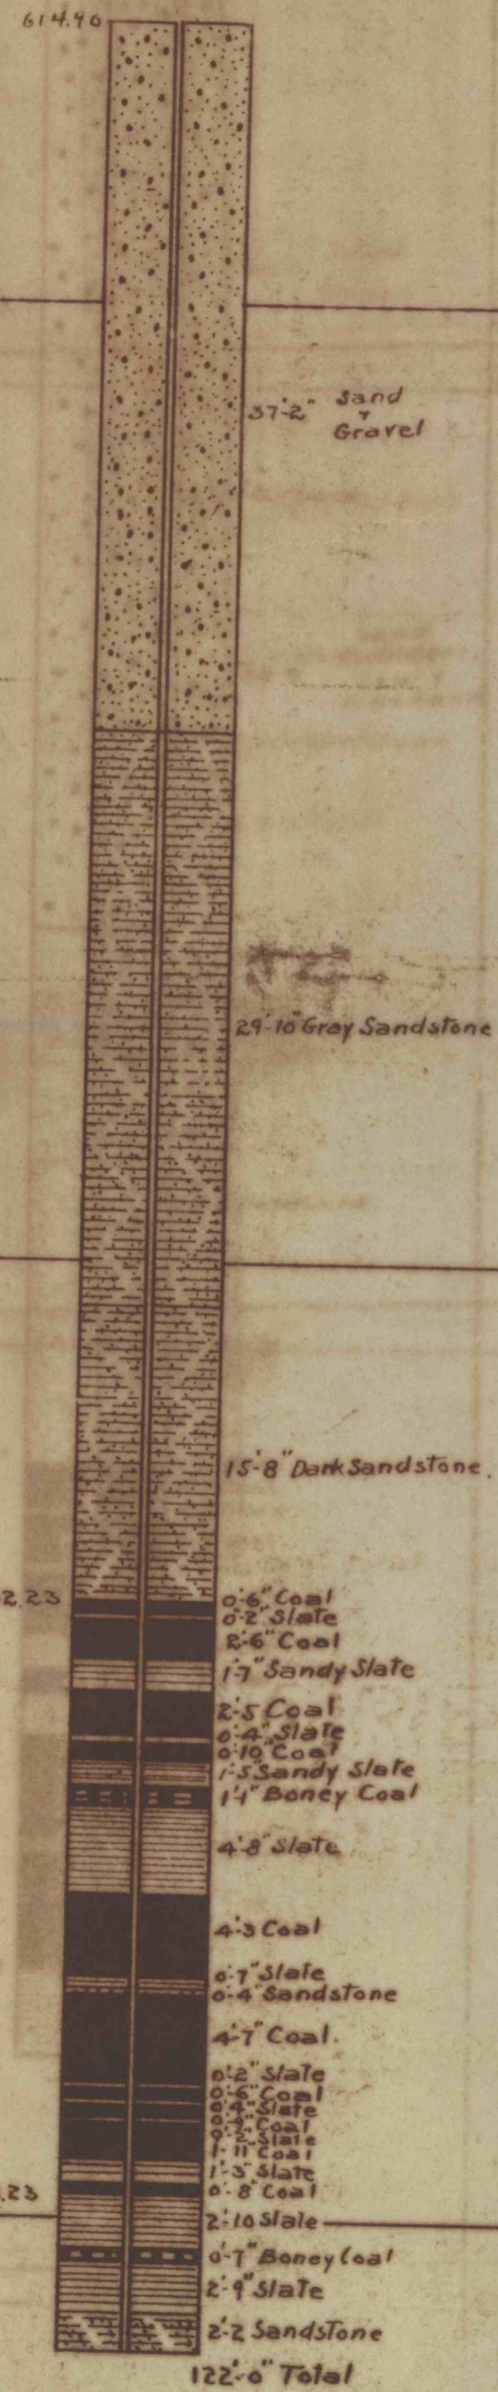 614.90
37'-2" Sand
&
Gravel
29'-10" Gray Sandstone
15'-8" Dark Sandstone.
2.23
0'-6" Coal
0'-2" Slate
2'-6" Coal
1'-7" Sandy Slate
2'-5 Coal
0'-4" Slate
0'-10" Coal
1'-5 Sandy Slate
1'-1" Boney Coal
4'-8" Slate
4'-3 Coal
0'-7" Slate
0'-4" Sandstone
4'-7" Coal.
0'-2" Slate
0'-6" Coal
0'-4" Slate
Coal
Slate
1'-11" Coal
1'-3" Slate
.23
0'-8" Coal
2'-10 Slate
0'-7" Boney Coal
2'-9" Slate
2'-2 Sandstone
122'-0" Total